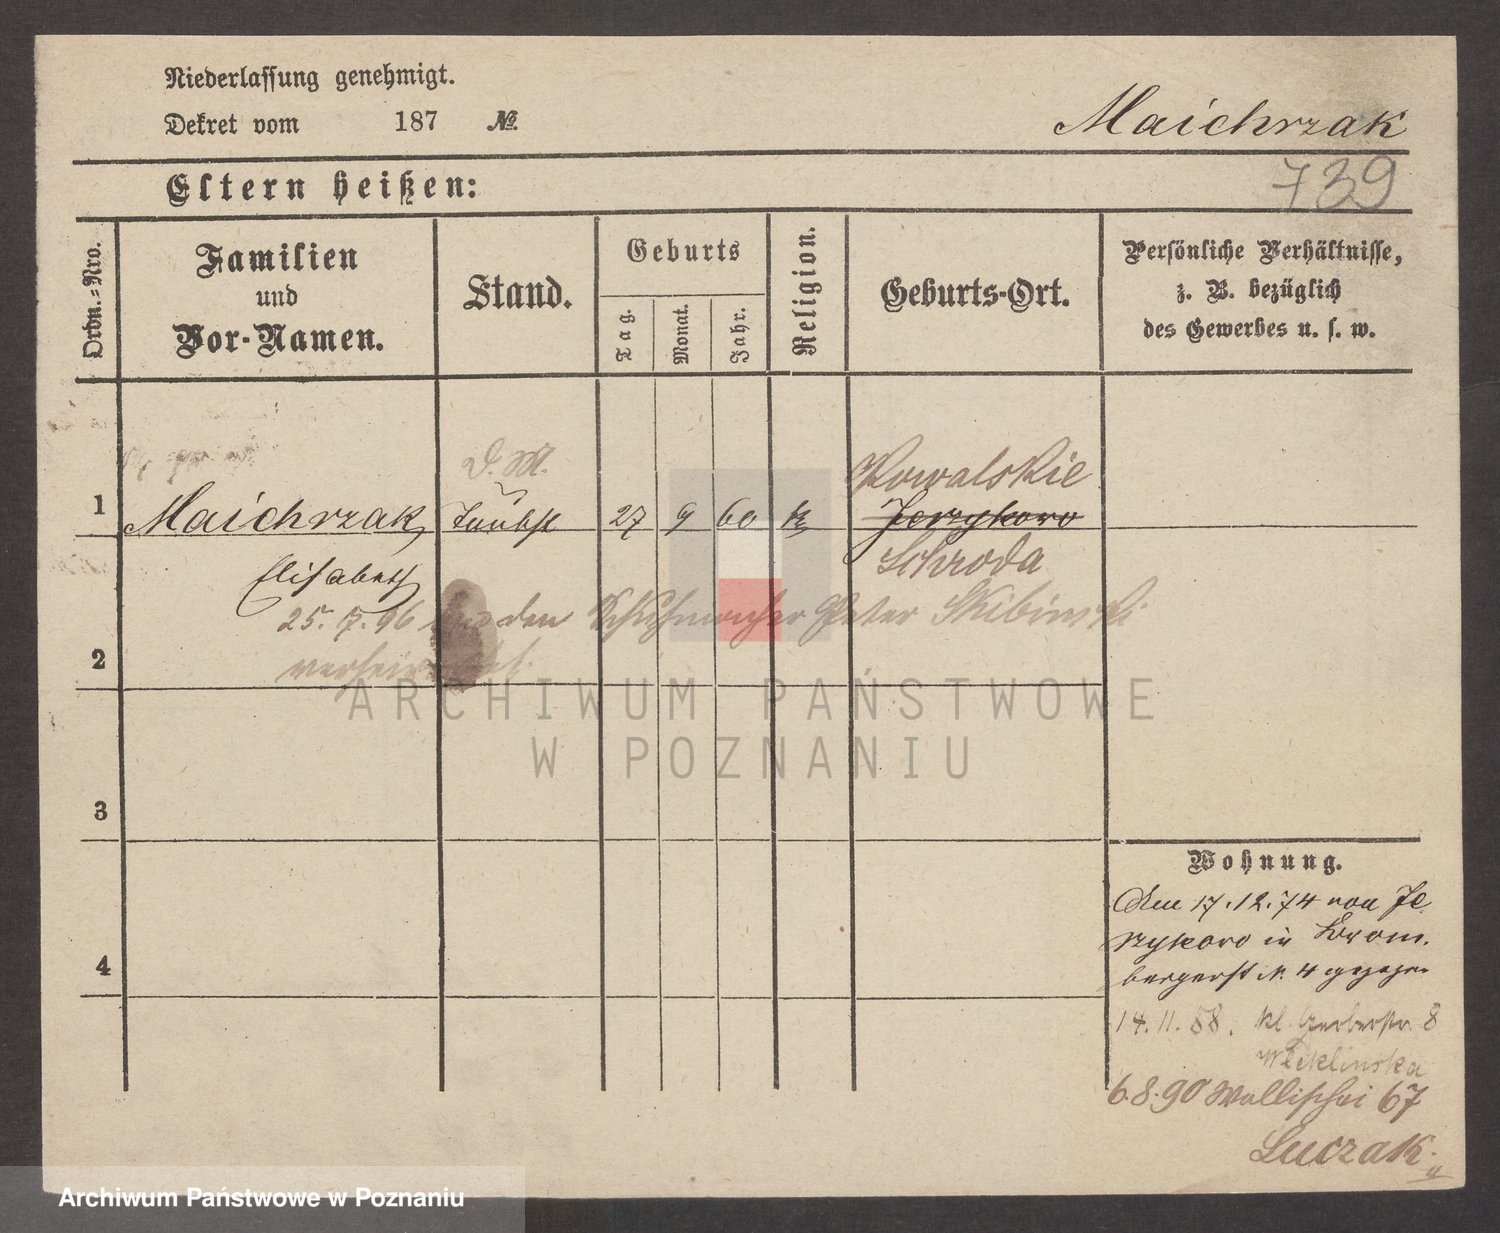 Niederlassung genehmigt.
Dekret vom 187 №.
Maichrzak
739
Eltern heißen:
Ordn.-Nro.
Familien
und
Vor-Namen.
Stand.
Geburts
Tag.
Monat.
Jahr.
Religion.
Geburts-Ort.
Persönliche Verhältnisse,
z. B. bezüglich
des Gewerbes u. s. w.
D. M.
Kowalskie
1 Maichrzak, 27 9 60 k Jerzykowo
Elisabeth Schroda
25. 7. 96 den Schuhmacher Peter Skibinski
2 verheirathet.
3
4
Wohnung.
Am 17.12.74 von Je
rzykowo in Brom.
bergerst N. 4 gezogen
14. 11. 88. kl. Gerberstr. 8
Weklinska
6.8.90 Wallischei 67
Luczak.
ARCHIWUM PAŃSTWOWE
W POZNANIU
Archiwum Państwowe w Poznaniu